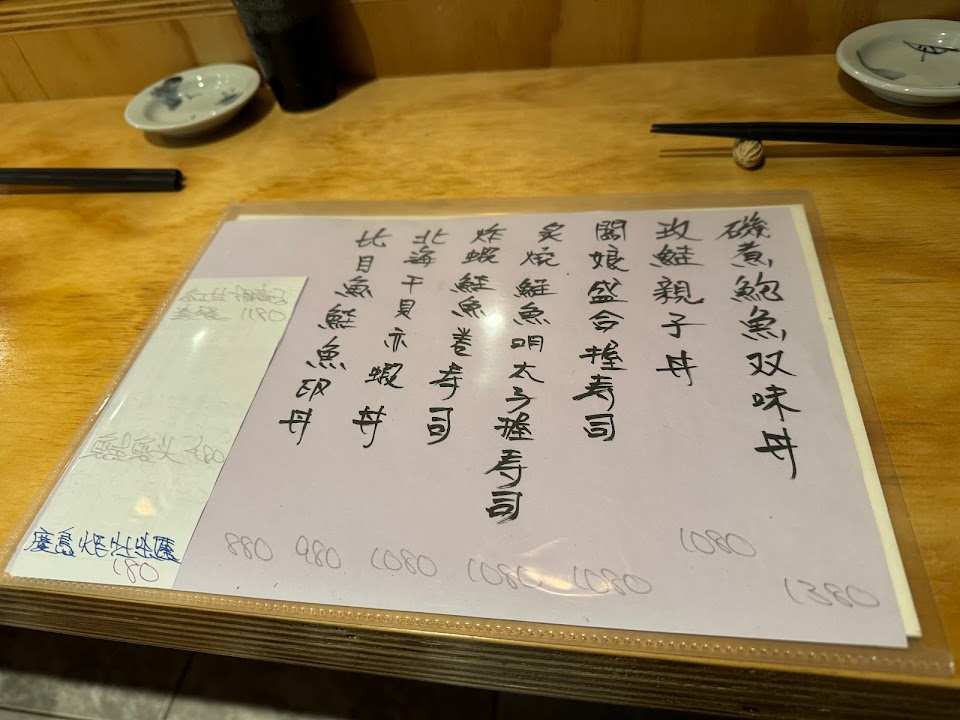 磯煮鮑魚双味丼
1380
玫鮭親子丼
1080
闆娘盛合握壽司
1080
炙燒鮭魚明太子握壽司
1080
炸蝦鮭魚卷壽司
1080
北海干貝赤蝦丼
980
比目魚鮭魚卵丼
880
1180
廣島炸牡蠣
180